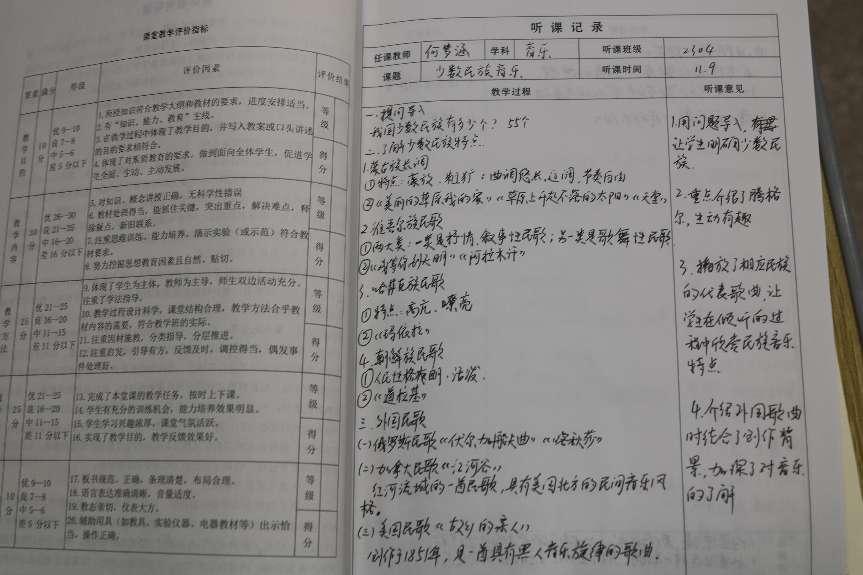 课堂教学评价指标
要素 满分 等级 评价因素 评价结果
教学目的 10分 优9-10 良7-8 中5-6 差5分以下
1.所授知识符合教学大纲和教材的要求，进度安排适当。
2.有“知识、能力、教育”主线。
3.在教学过程中体现了教学目的，并写入教案或口头讲述
的目的要求相符合。
4.体现了对素质教育的要求，做到面向全体学生，促进学
生全面、生动、主动发展。
等级
得分
教学内容 30分 优26-30 良21-25 中16-20 差16分以下
5.对知识、概念讲授正确，无科学性错误
6.教材处理得当，能抓住关键，突出重点，解决难点，
接疑点，新旧联系。
7.注重思维训练，能力培养，演示实验（或示范）符合教
材要求。
8.努力挖掘思想教育因素且自然、贴切。
等级
得分
教学方法 25分 优21-25 良16-20 中11-15 差11分以下
9.体现了学生为主体，教师为主导，师生双边活动充分，
注重了学法指导。
10.教学过程设计科学，课堂结构合理，教学方法合乎教
材内容的需要，符合教学班的实际。
11.注重因材施教，分类指导，分层推进。
12.注重启发，引导有方，反馈及时，调控得当，偶发事
件处理好。
等级
得分
25分 优21-25 良16-20 中11-15 差11分以下
13.完成了本堂课的教学任务，按时上下课。
14.学生有充分的训练机会，能力培养效果明显。
15.学生学习兴趣浓厚，课堂气氛活跃。
16.实现了教学目的，教学反馈效果好。
等级
得分
10分 优9-10 良7-8 中5-6 差5分以下
17.板书规范、正确、条理清楚，布局合理。
18.语言表达准确清晰，音量适度。
19.教态亲切，仪表大方。
20.辅助用具（如教具、实验仪器、电器教材等）出示恰
当，操作正确。
等级
得分
听课记录
任课教师 何梦涵 学科 音乐 听课班级 2304
课题 少数民族音乐 听课时间 11.9
教学过程 听课意见
一、提问导入
我国少数民族有多少个？ 55个
二、了解少数民族特点
1.蒙古族长调
①特点：豪放、粗犷；曲调悠长，辽阔，节奏自由
②《美丽的草原我的家》《草原上升起不落的太阳》《天堂》
2.维吾尔族民歌
①两大类：一类是抒情、叙事性民歌；另一类是歌舞性民歌
②《掀起你的头盖》《阿拉木汗》
3.哈萨克族民歌
①特点：高亢、嘹亮
②《玛依拉》
4.朝鲜族民歌
①人民性格爽朗、活泼
②《道拉基》
三、外国民歌
(一)俄罗斯民歌《伏尔加船夫曲》《喀秋莎》
(二)加拿大民歌《红河谷》
红河流域的一首民歌，具有美国北方的民间音乐风
格。
(三)美国民歌《故乡的亲人》
创作于1851年，是一首具有黑人音乐旋律的歌曲。
1.用问题导入，
让学生明确少数民
族
2.重点介绍了腾格
尔，生动有趣
3.播放了相应民族
的代表歌曲，让
学生在倾听的过
程中欣赏民族音乐
特点
4.介绍外国歌曲
时结合了创作背
景，加深了对音乐
的了解